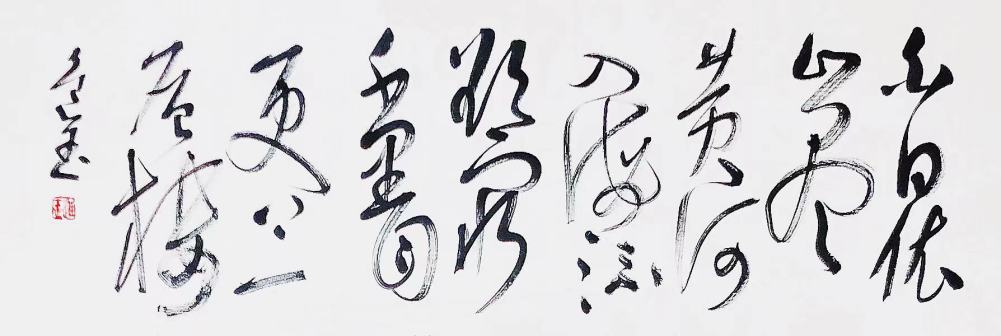 白日依
山尽
黄河
入海流
欲窮
千里目
更上一
層樓